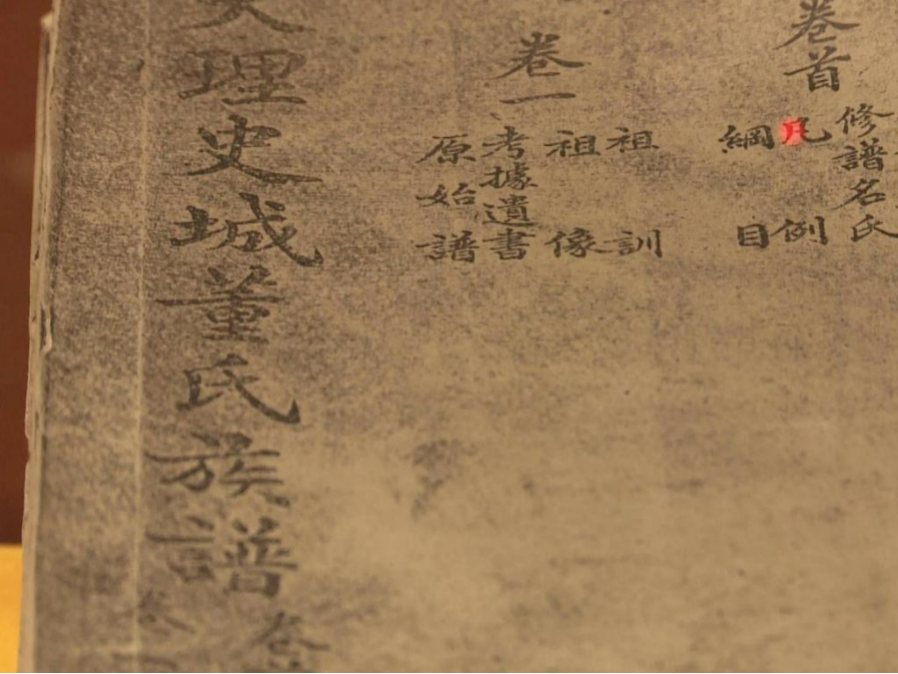 卷首
修譜名氏
凡例
綱目
卷一
祖訓
祖像
考據遺書
原始譜
大理史城董氏族譜